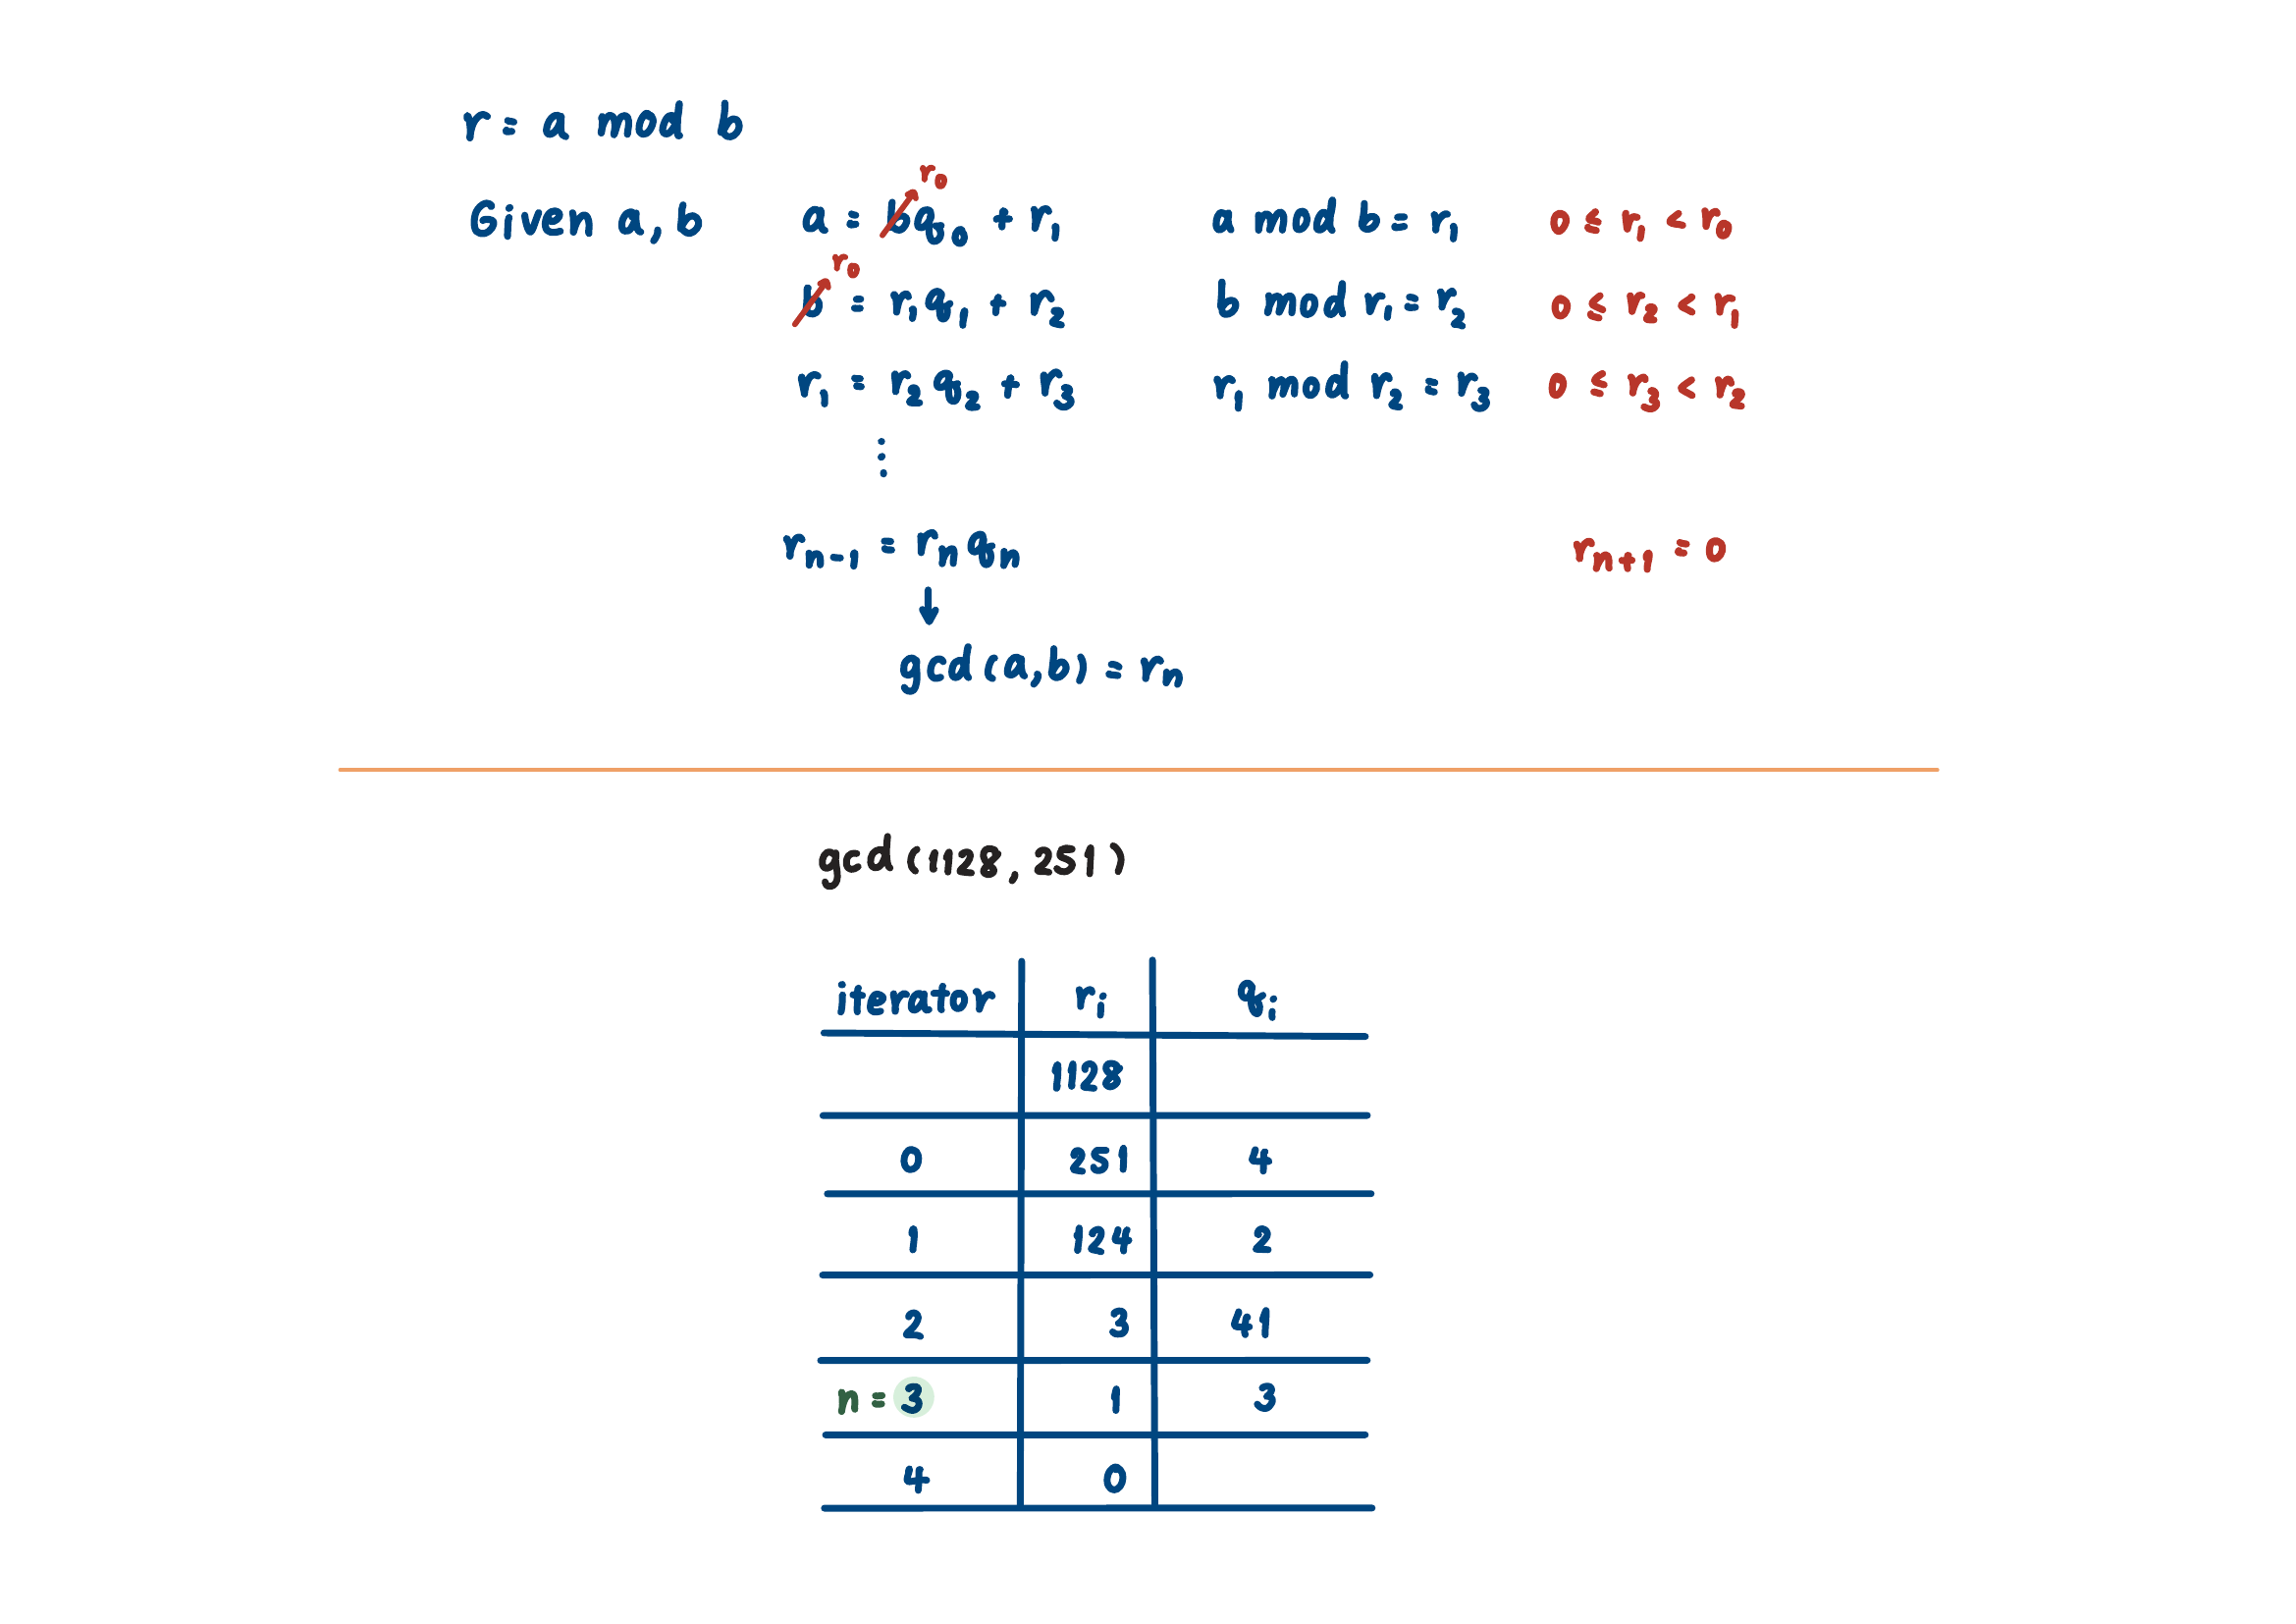 r = a mod b
r₀
Given a, b a = bq₀ + r₁ a mod b = r₁ 0 ≤ r₁ < r₀
r₀
b = r₁q₁ + r₂ b mod r₁ = r₂ 0 ≤ r₂ < r₁
r₁ = r₂q₂ + r₃ r₁ mod r₂ = r₃ 0 ≤ r₃ < r₂
⋮
rₙ₋₁ = rₙqₙ rₙ₊₁ = 0
↓
gcd(a,b) = rₙ
gcd(1128, 251)
iterator rᵢ qᵢ
1128
0 251 4
1 124 2
2 3 41
n = 3 1 3
4 0